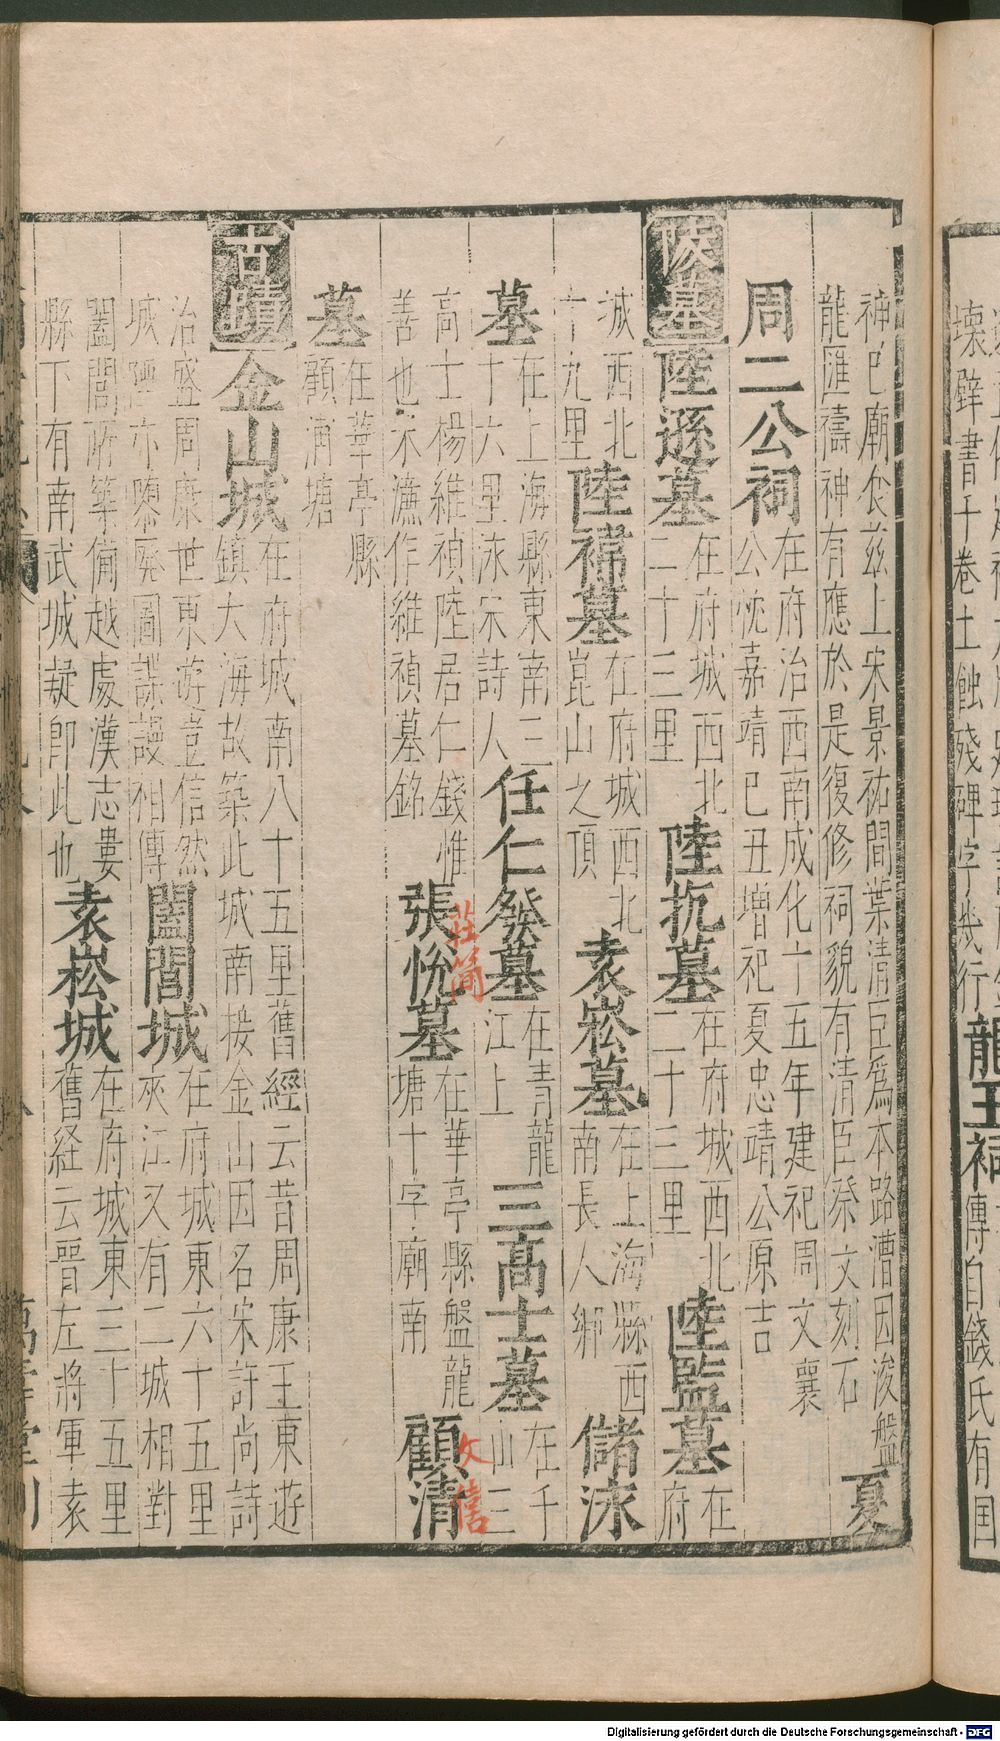 壞辟書千卷土蝕殘碑字幾行龍王祠
傳自錢氏有国
神巳廟食兹上宋景祐間葉清臣為本路漕因浚盤
龍匯禱神有應於是復修祠貌有清臣祭文刻石
夏
周二公祠
在府治西南成化十五年建祀周文襄
公忱嘉靖巳丑增祀夏忠靖公原吉
陵墓
陸遜墓
在府城西北
二十三里
陸抗墓
在府城西北
二十三里
陸監墓
在府
城西北
十九里
陸禕墓
在府城西北
崑山之頂
袁崧墓
在上海縣西
南長人鄉
儲泳
墓
在上海縣東南三
十六里泳宋詩人
任仁發墓
在青龍
江上
三高士墓
在千
山三
高士楊維禎陸居仁錢惟
善也宋濂作維禎墓銘
張悅墓
莊簡
在華亭縣盤龍
塘十字廟南
顧清
文僖
墓
在華亭縣
顧浦塘
古蹟
金山城
在府城南八十五里舊經云昔周康王東遊
鎮大海故築此城南接金山因名宋許尚詩
治盛周康世東遊豈信然
城陴亦隳廢圖諜謾相傳
闔閭城
在府城東六十五里
夾江又有二城相對
闔閭所築備越處漢志婁
縣下有南武城疑即此也
袁崧城
在府城東三十五里
舊経云晋左將軍袁
Digitalisierung gefördert durch die Deutsche Forschungsgemeinschaft - DFG